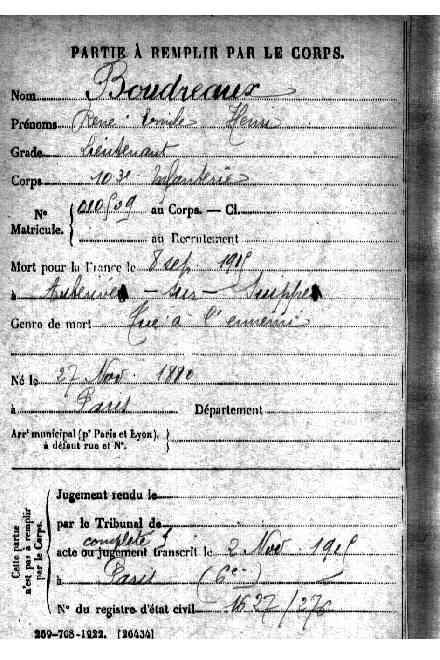 PARTIE À REMPLIR PAR LE CORPS.
Nom Boudreaux
Prénoms René Emile Henri
Grade Lieutenant
Corps 103e Infanterie
N° Matricule. { au Corps. — Cl.
au Recrutement
Mort pour la France le 8 sep 1915
à Auberive - sur - Suippes
Genre de mort Tué à l'ennemi
Né le 27 Nov. 1880
à Paris Département
Arr' municipal (p' Paris et Lyon),
à défaut rue et N°.
Cette partie n'est pas à remplir par le Corps.
Jugement rendu le
par le Tribunal de
complété
acte ou jugement transcrit le 2 Nov. 1915
à Paris (6e)
N° du registre d'état civil 1527/276
259-708-1922. [26434]